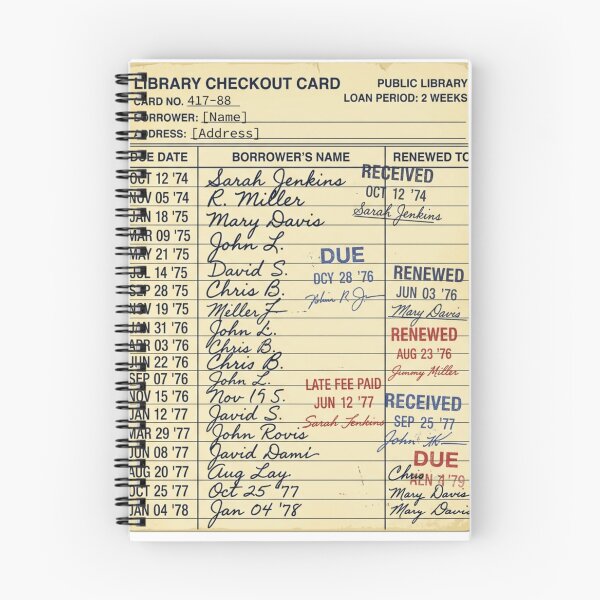 LIBRARY CHECKOUT CARD PUBLIC LIBRARY
CARD NO. 417-88 LOAN PERIOD: 2 WEEKS
BORROWER: [Name]
ADDRESS: [Address]
DUE DATE BORROWER'S NAME RENEWED TO
OCT 12 '74 Sarah Jenkins RECEIVED
OCT 12 '74
Sarah Jenkins
NOV 05 '74 R. Miller
JAN 18 '75 Mary Davis
MAR 09 '75 John L.
MAY 21 '75
DUE
DCY 28 '76
JUL 14 '75 David S. RENEWED
JUN 03 '76
Mary Davis
SEP 28 '75 Chris B.
NOV 19 '75 Meller
JAN 31 '76 John L. RENEWED
AUG 23 '76
Jimmy Miller
APR 03 '76 Chris B.
JUN 22 '76 Chris B.
SEP 07 '76 John L. LATE FEE PAID
JUN 12 '77
Sarah Jenkins
NOV 15 '76 Nov 19 S. RECEIVED
SEP 25 '77
John
JAN 12 '77 Javid S.
MAR 29 '77 John Rovis
JUN 08 '77 Javid Dami DUE
AUG 20 '77 Aug Lay Chris
OCT 25 '77 Oct 25 '77 Mary Davis
JAN 04 '78 Jan 04 '78 Mary Davis